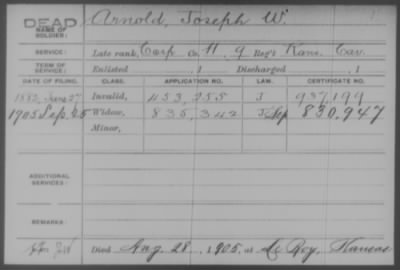 DEAD
NAME OF SOLDIER:
Arnold, Joseph W.
SERVICE:
Late rank, Corp Co. H, 9 Reg't Kans. Cav.
TERM OF SERVICE:
Enlisted , 1 Discharged , 1
DATE OF FILING. CLASS. APPLICATION NO. LAW. CERTIFICATE NO.
1882, June 27 Invalid, 453,255 J 937,199
1905 Sep. 25 Widow, 835,342 830,947
Minor,
ADDITIONAL SERVICES:
REMARKS:
Died Aug. 28, 1905, at Le Roy, Kansas